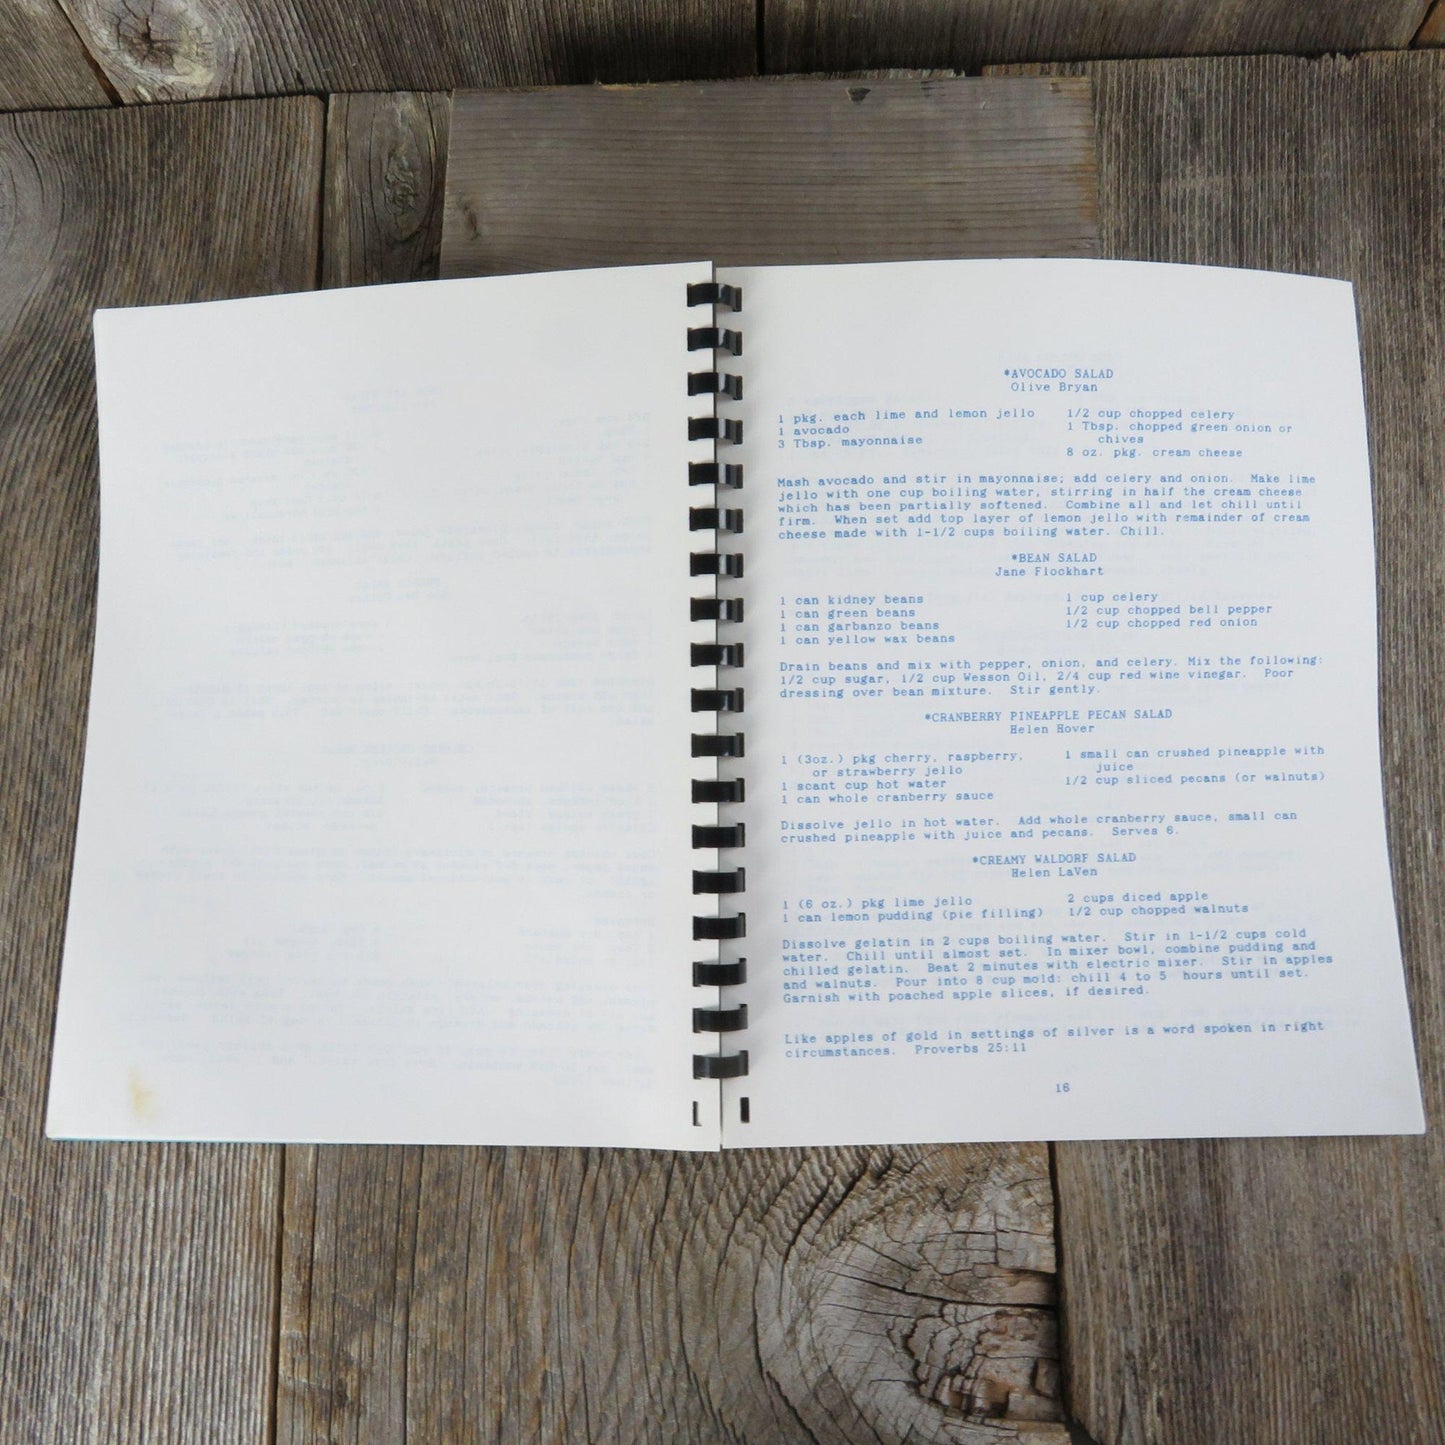 *AVOCADO SALAD
Olive Bryan
1 pkg. each lime and lemon jello
1 avocado
3 Tbsp. mayonnaise
1/2 cup chopped celery
1 Tbsp. chopped green onion or
chives
8 oz. pkg. cream cheese
Mash avocado and stir in mayonnaise; add celery and onion. Make lime
jello with one cup boiling water, stirring in half the cream cheese
which has been partially softened. Combine all and let chill until
firm. When set add top layer of lemon jello with remainder of cream
cheese made with 1-1/2 cups boiling water. Chill.
*BEAN SALAD
Jane Flockhart
1 can kidney beans
1 can green beans
1 can garbanzo beans
1 can yellow wax beans
1 cup celery
1/2 cup chopped bell pepper
1/2 cup chopped red onion
Drain beans and mix with pepper, onion, and celery. Mix the following:
1/2 cup sugar, 1/2 cup Wesson Oil, 2/4 cup red wine vinegar. Poor
dressing over bean mixture. Stir gently.
*CRANBERRY PINEAPPLE PECAN SALAD
Helen Hover
1 (3oz.) pkg cherry, raspberry,
or strawberry jello
1 scant cup hot water
1 can whole cranberry sauce
1 small can crushed pineapple with
juice
1/2 cup sliced pecans (or walnuts)
Dissolve jello in hot water. Add whole cranberry sauce, small can
crushed pineapple with juice and pecans. Serves 6.
*CREAMY WALDORF SALAD
Helen LaVen
1 (6 oz.) pkg lime jello
1 can lemon pudding (pie filling)
2 cups diced apple
1/2 cup chopped walnuts
Dissolve gelatin in 2 cups boiling water. Stir in 1-1/2 cups cold
water. Chill until almost set. In mixer bowl, combine pudding and
chilled gelatin. Beat 2 minutes with electric mixer. Stir in apples
and walnuts. Pour into 8 cup mold: chill 4 to 5 hours until set.
Garnish with poached apple slices, if desired.
Like apples of gold in settings of silver is a word spoken in right
circumstances. Proverbs 25:11
16